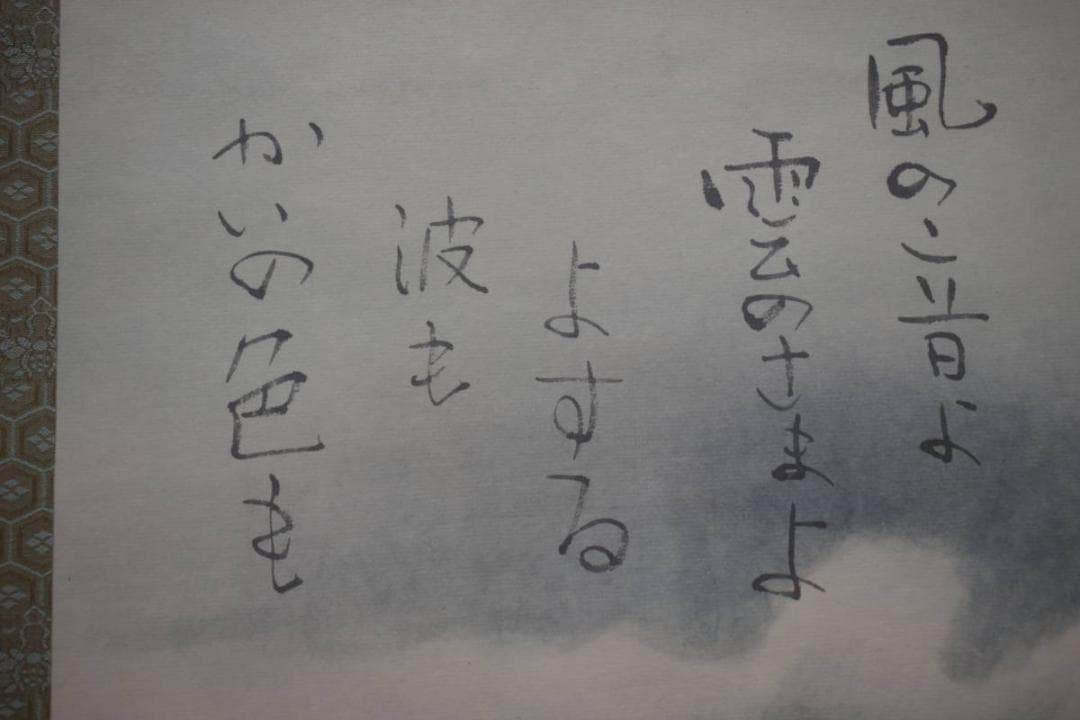 風の音よ
雲のさまよ
よする
波も
かいの色も